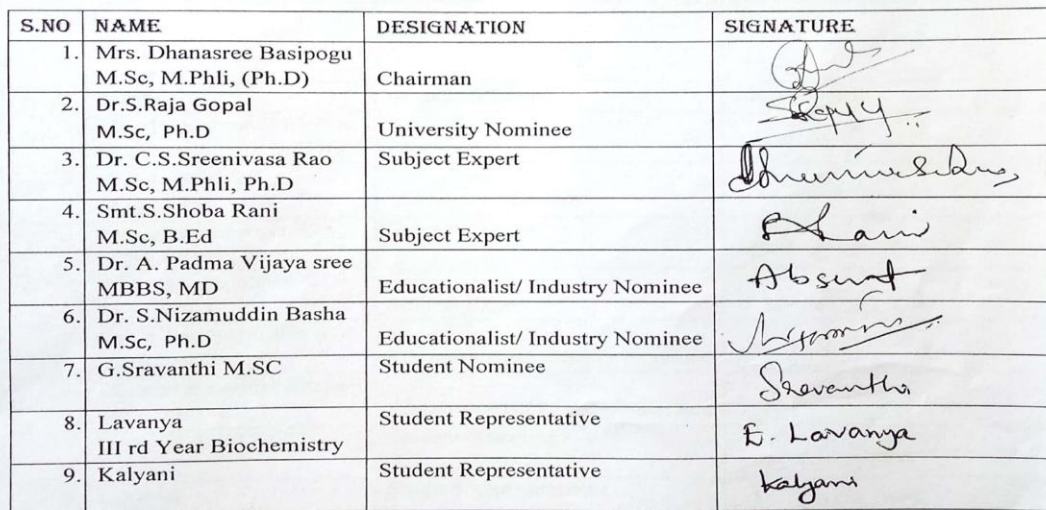 S.NO NAME DESIGNATION SIGNATURE
1. Mrs. Dhanasree Basipogu
M.Sc, M.Phli, (Ph.D) Chairman
2. Dr.S.Raja Gopal
M.Sc, Ph.D University Nominee
3. Dr. C.S.Sreenivasa Rao Subject Expert
M.Sc, M.Phli, Ph.D
4. Smt.S.Shoba Rani
M.Sc, B.Ed Subject Expert
5. Dr. A. Padma Vijaya sree Absent
MBBS, MD Educationalist/ Industry Nominee
6. Dr. S.Nizamuddin Basha
M.Sc, Ph.D Educationalist/ Industry Nominee
7. G.Sravanthi M.SC Student Nominee
Sravanthi
8. Lavanya Student Representative
III rd Year Biochemistry E. Lavanya
9. Kalyani Student Representative Kalyani